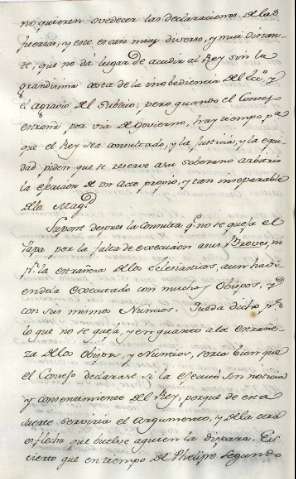 no quieren ovedecer las declaraciones de las
fuerzas, y este es caso muy diverso, y mui distan-
te, que no dá lugar de acudir al Rey sin la
grandisima costa de la inobediencia del Ecc.º y
el agravio del subdito; pero quando el Consejo
extraña por via de Govierno, hay tiempo p.ª
que el Rey sea consultado, y la Justicia, y la equi-
dad piden que se reserve a su soberano arbitrio
la execucion de un acto propio, y tan inseparable
de la Mag.d
Supone despues la Consulta q.e no se queja el
Papa por la falta de execucion a sus Breves, ni
p.r la extrañeza de los Eclesiasticos, aun havi-
endola executado con muchos Obispos, y
con sus mismos Nuncios. Queda dicho p.r
lo que no se queja, y en quanto a la extrañe-
za de los Obispos, y Nuncios, seria bien que
el Consejo declarase, si la executó sin noticia
y consentimiento del Rey, porque de esta
suerte serviria el argumento, y de la otra
es flecha que buelve a quien la dispara. Es
cierto que en tiempo de Phelipe Segundo